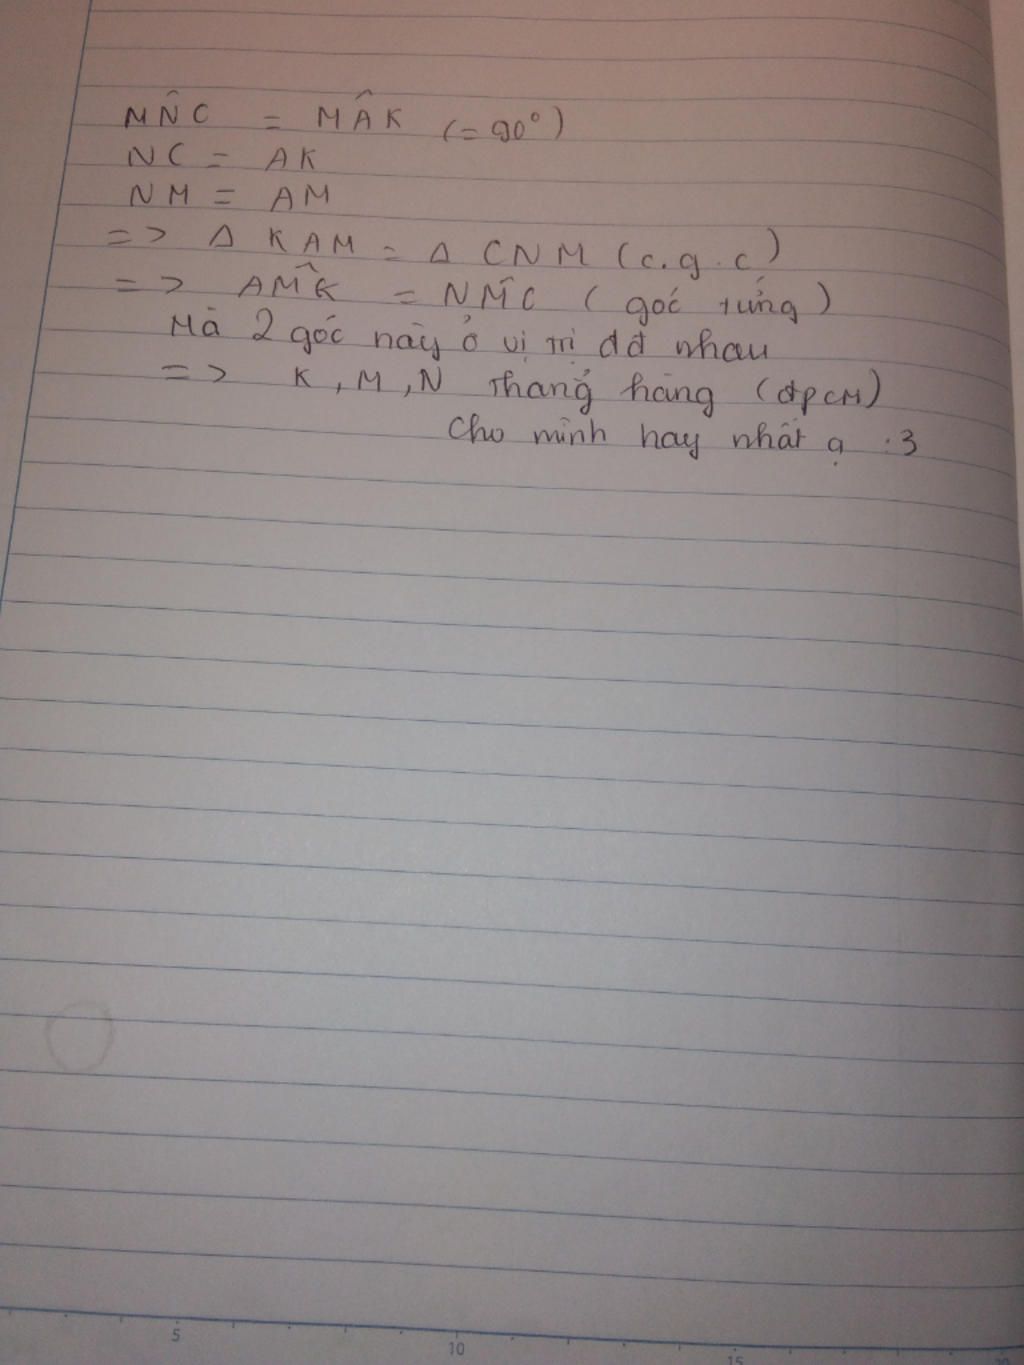 MN̂C = MÂK (= 90°)
NC = AK
NM = AM
=> Δ KAM = Δ CNM (c.g.c)
=> AM̂K = NM̂C (góc tưởng)
Mà 2 góc này ở vị trị đđ nhau
=> K, M, N thẳng hàng (đpcM)
Cho mình hay nhất ạ :3
5 10 15